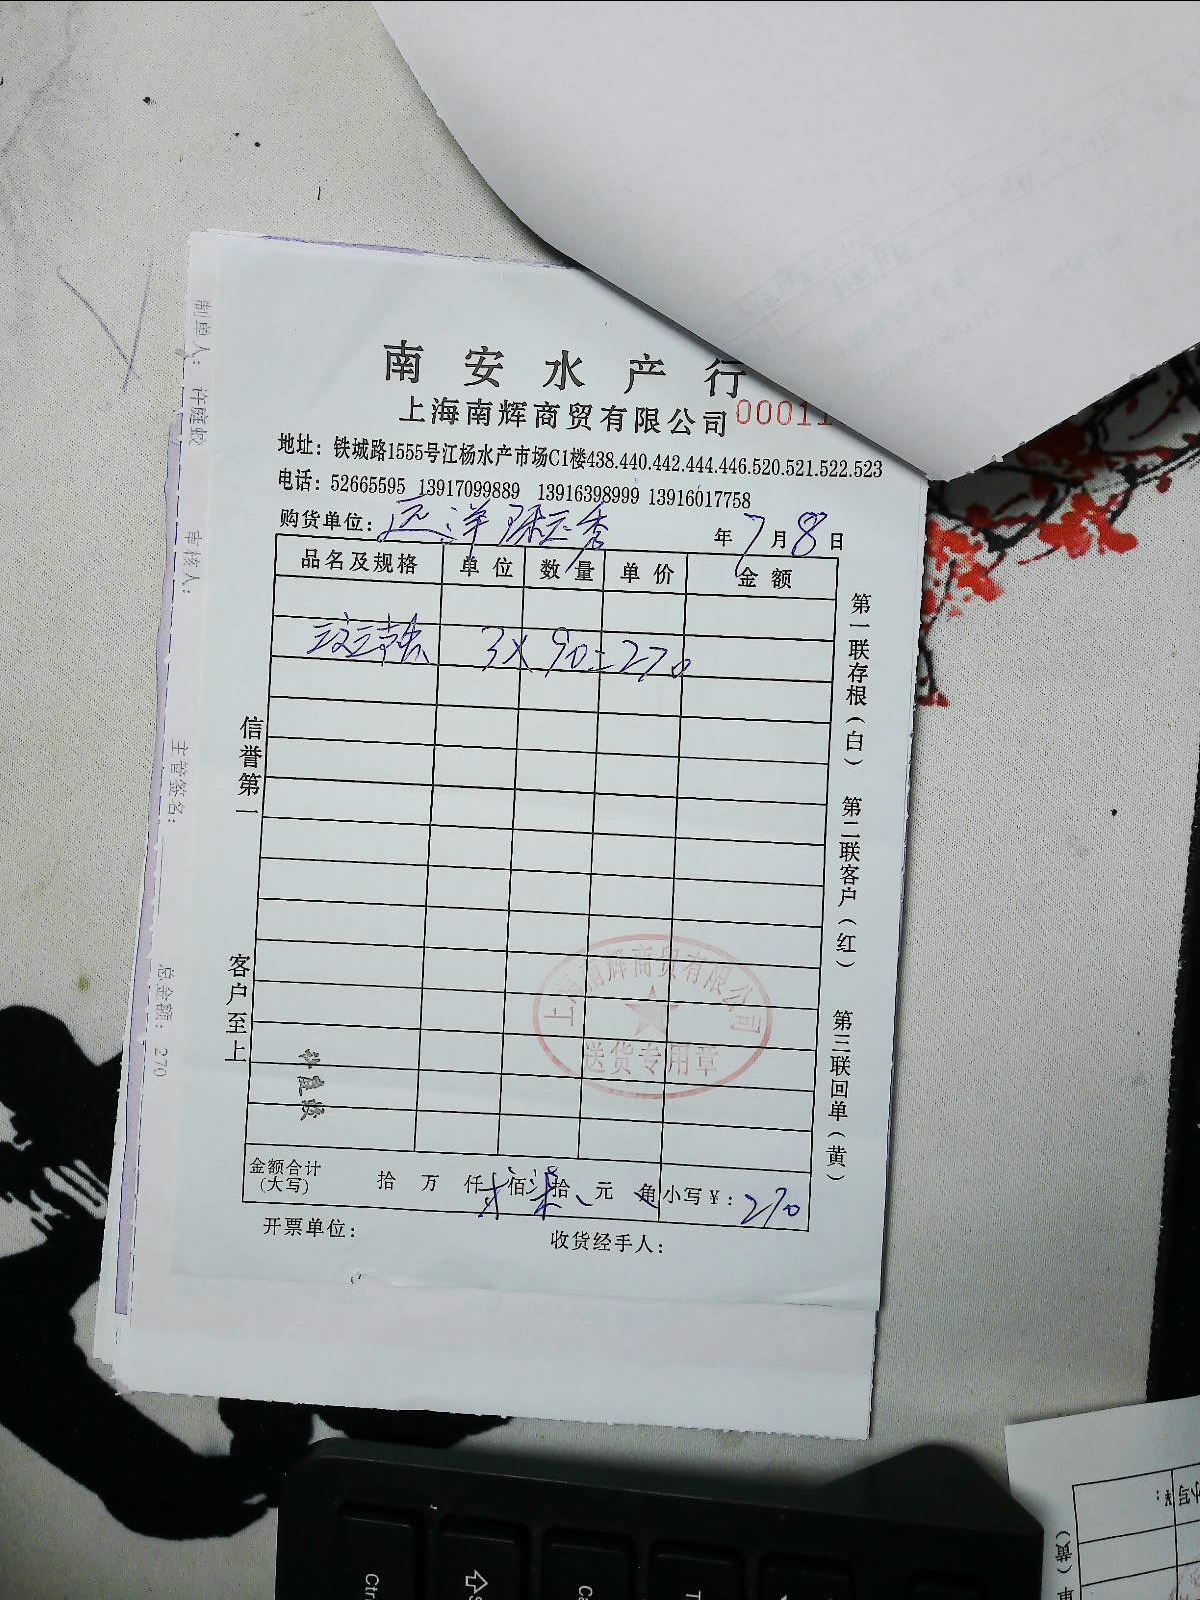 南安水产行
上海南辉商贸有限公司 00011
地址：铁城路1555号江杨水产市场C1楼438.440.442.444.446.520.521.522.523
电话：52665595 13917099889 13916398999 13916017758
购货单位：远洋 秀 年7月8日
品名及规格 单位 数量 单价 金额
3×90=270
金额合计(大写) 拾 万 仟 贰佰柒拾 元 角 小写¥：270
开票单位： 收货经手人：
信誉第一
客户至上
第一联存根(白) 第二联客户(红) 第三联回单(黄)
上海南辉商贸有限公司
送货专用章
制单人： 审核人： 主管签名： 总金额：270
小写¥：
单(黄)
Ctr